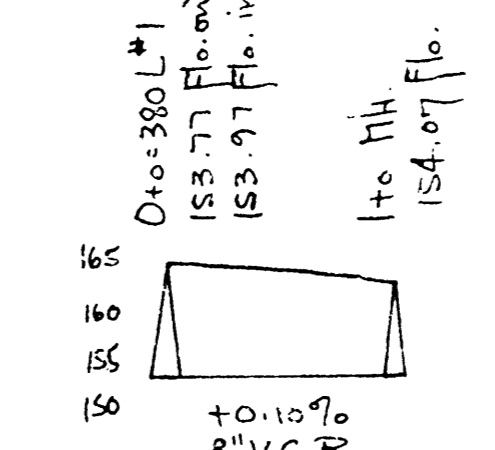 0+0=380 L #1
153.77 Flo.
153.97 Flo.
1+0 MH.
154.07 Flo.
165
160
155
150
+0.10%
8" V.C.P.